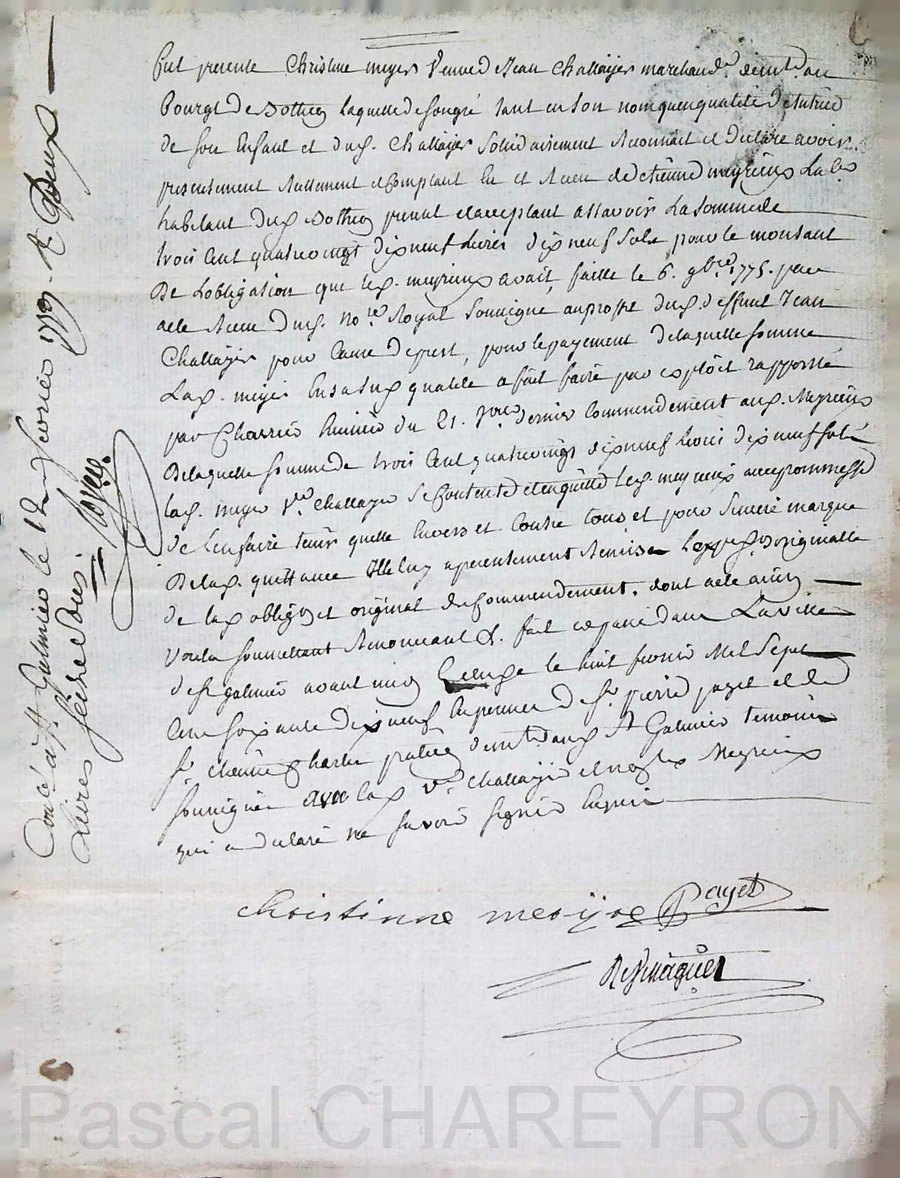 fut presente Christine meyer Veuve de Jean Challayer marchand demt. au
Bourgt de Sothéo laquelle de son gré tant en son nom qu'en qualité de tutrice
de son Enfant et dud. Challayer solidairement Reconnait et declare avoir
presentement Reellement et Comptant Eu et Recu de etienne meyrieux Lab.
habitant dud. Sothéo present et acceptant assavoir La somme de
trois Cent quatre vingt dix neuf Livres dix neuf Sols pour le montant
De L'obligation que led. meyrieux avait faitte le 6. 9bre 1775. par
acte Recu dud. nore. Royal Soussigné au proffit dud. deffunt Jean
Challayer pour Cause de prest, pour le payement de laquelle somme
Lad. meyer En sa dite qualité a fait faire par exploit rapporté
par Charrier huissier du 21. dernier Commendement aud. Meyrieux
De laquelle somme de trois Cent quatre vingt dix neuf Livres dix neuf Sols
lad. meyer Ve. Challayer Se Contente et en quitte led. meyrieux avec promesse
de L'en faire tenir quitte Envers et Contre tous, et pour sincere marque
De lad. quittance Elle luy a presentement Remis L'exped. originalle
de lad. obligon et original du Commendement. dont acte ainsy
Voulu soummettant Renonceant &. fait et passé dans La Ville
de St galmier avant midy le huit fevrier Mil Sept
Cent soixante dix neuf En presence de Sr. pierre payet et de
Sr. Charles demt. aud. St Galmier temoins
soussignés avec lad. Ve. Challayer et non led. Meyrieux
qui a declaré ne savoir signer Enquis
christinne meoijoe Payet
Controlé a St Galmier le 12 fevrier 1779. R. Deux
Livres seize Sols
Pascal CHAREYRON